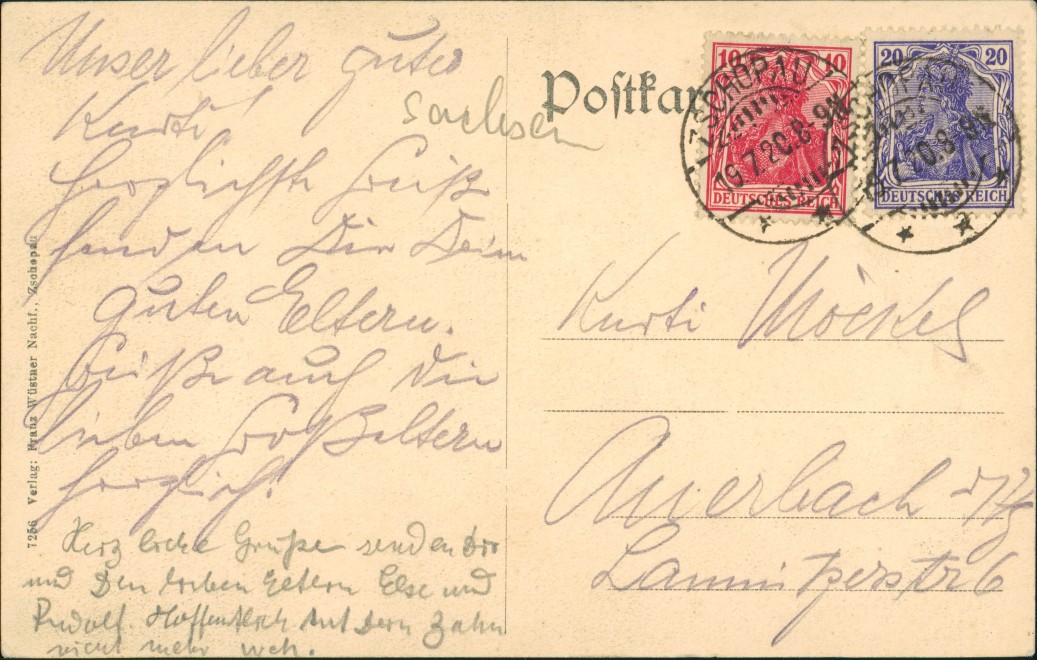 Unser lieber guter
Kurti!
Herzlichste Grüße
senden Dir Deine
guten Eltern.
Grüße auch die
lieben Großeltern
herzlich!
Herzliche Grüße senden Dir
und Den lieben Eltern Else und
Rudolf. Hoffentlich tut Dein Zahn
nicht mehr weh.
7256 Verlag: Franz Wüstner Nachf., Zschopau
Postkar
Sachsen
10 10
DEUTSCHES REICH
20 20
DEUTSCHES REICH
ZSCHOPAU
19.7.20.8-9N
ZSCHOPAU
19.7.20.8-9N
Kurti Möckel
Auerbach
6